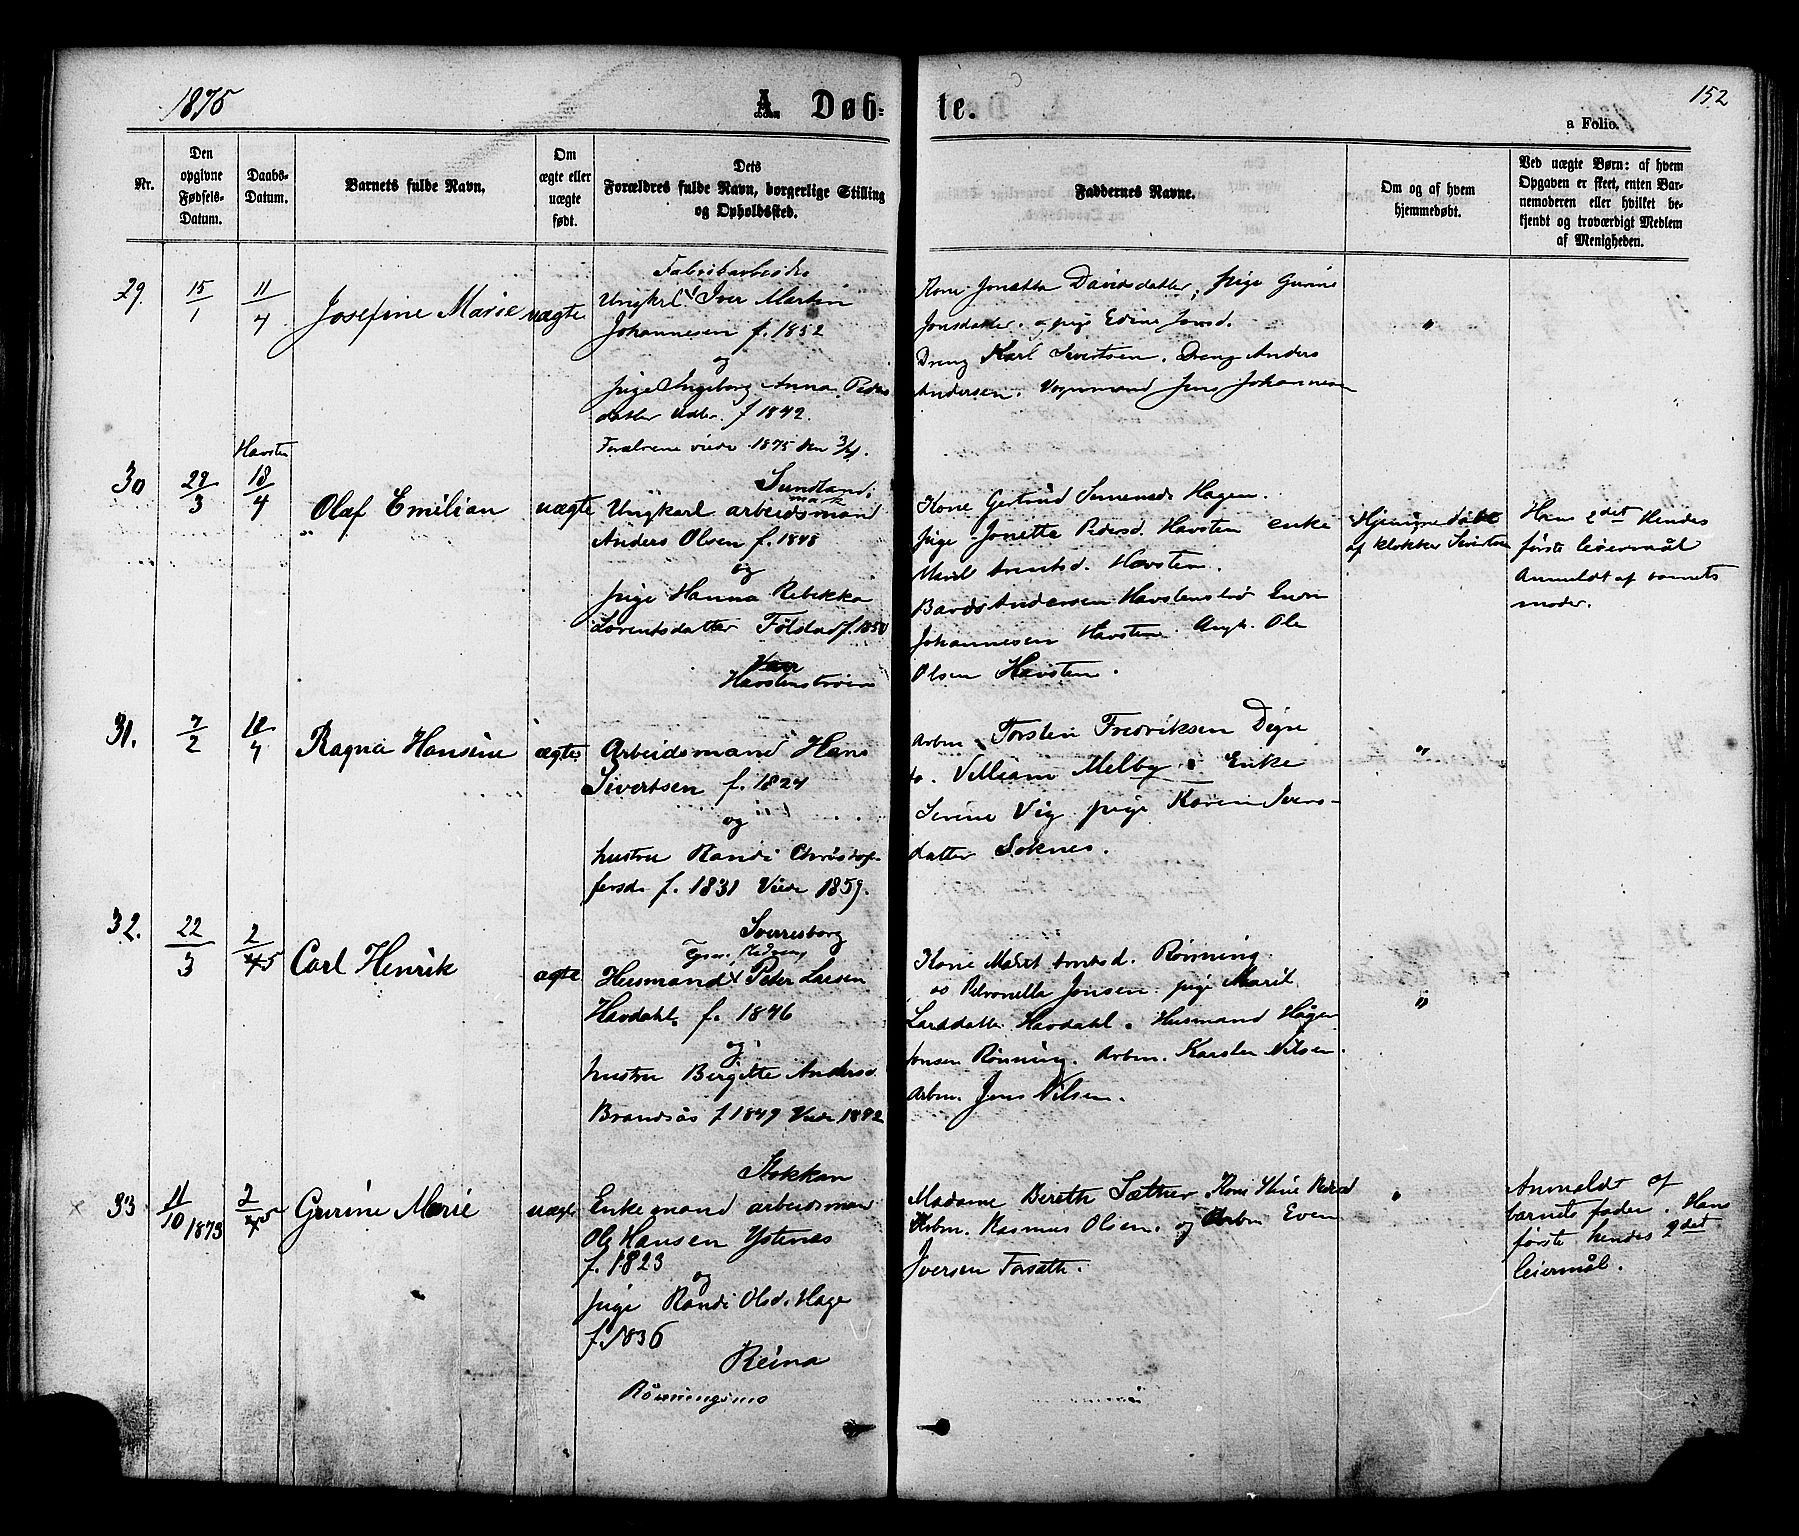 1875
A. Døbte.
152
a Folio.
Nr.
Den opgivne Fødsels-Datum.
Daabs-Datum.
Barnets fulde Navn.
Om ægte eller uægte født.
Dets Forældres fulde Navn, borgerlige Stilling og Opholdssted.
Faddernes Navne.
Om og af hvem hjemmedøbt.
Ved uægte Børn: af hvem Opgaven er skeet, enten Barnemoderen eller hvilket bekjendt og troværdigt Medlem af Menigheden.
29. 15/1 11/4 Josefine Marie uægte
Fabrikarbeider
Ungkrl Iver Martin
Johannesen f. 1852
og
pige Ingeborg Anna Peders
datter f 1842.
Forældrene viede 1875 den 3/4.
Kone Jonetta Davidsdatter, pige Gurine
Jonsdatter. og pige Edine Jonsd.
Dreng Karl Sivertsen. Dreng Anders
Andersen. Vognmand Jens Johannesen
"
30 Havsten
29/3 18/4 Olaf Emilian uægte
Sundland
mark
Ungkarl arbeidsmand
Anders Olsen f. 1848
og
pige Hanna Rebekka
Lorentsdatter Følstad f. 1850
Havstenstrøen
Kone Gertrud Hagen.
pige Jonetta Pedersd. Havsten enke
Marit Arntsd. Havsten.
Bards Andersen Havstenstrø Even
Johannesen Havsten. Ungk. Ole
Olsen Havsten.
Hjemmedøbt
af klokker Sivertsen
Hans 2det Hendes
første leiermål
Anmeldt af barnets
moder.
31. 7/2 18/4 Ragna Hansine ægte
Arbeidsmand Hans
Sivertsen f. 1824
og
hustru Randi Christof-
fersd. f. 1831 Viede 1859.
Arbm Torsten Fredriksen Digre
do. Villiam Melby. Enke
Serine Vig pige Karen Ivers-
datter Soknes.
"
32. 22/3 2/5 Carl Henrik ægte
Sverresborg
Husmand Peter Larsen
Havdahl. f. 1846
og
hustru Birgitte Andersd.
Brandsås f 1849 Viede 1872
Kone Marit Arntsd. Rønning.
do Petronella Jonsen. pige Marit
Larsdatter Havdahl. Husmand Hågen
Jonsen Rønning. Arbm. Karsten Nilsen.
Arbm. Jens Nilsen.
"
33 11/10 1873 2/5 Gurine Marie uægte
Stokkan
Enkemand arbeidsmand
Ole Hansen Ystenæs
f. 1823
og
pige Randi Olsd. Hage
f. 1836
Reina
Rønningsmo
Madame Bereth Sæther Kone Stine Pedersd
Arbm. Rasmus Olsen. og Arbm Even
Iversen Forsæth.
"
Anmeldt af
barnets fader. Hans
første hendes 2det
leiermål.